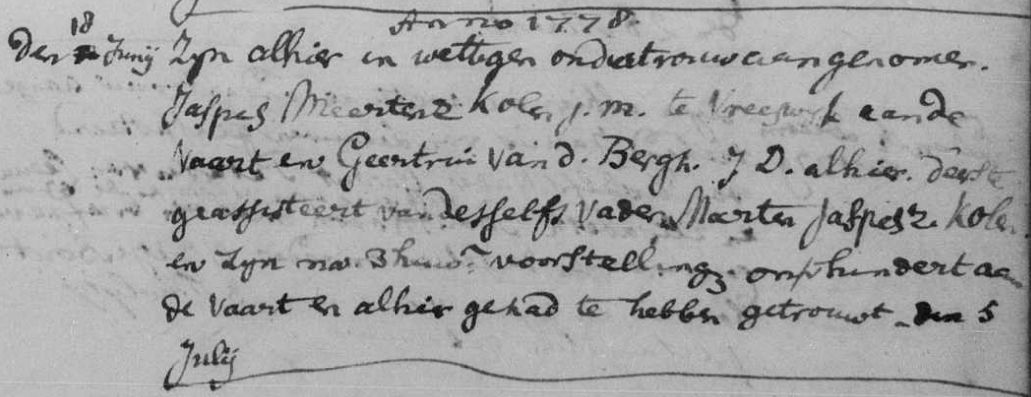 Anno 1778.
den 18 Junij Zyn alhier in wettigen ondertrouw aangenomen.
Jasper Meertensz Kolen j. m. te Vreeswyk aande
Vaart en Geertrui van d. Bergh. J D. alhier. d'erste
geassisteert van desselfs Vader Marten Jaspersz. Kolen
en Zyn na 3 huw. voorstellingen onverhindert aan
de Vaart en alhier gehad te hebben getrouwt den 5
Julij